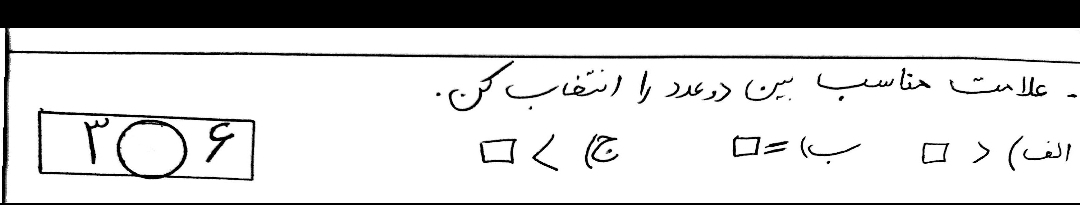 - علامت مناسب بین دو عدد را انتخاب کن.
الف) > □ ب) = □ ج) < □
۳ ○ ۶